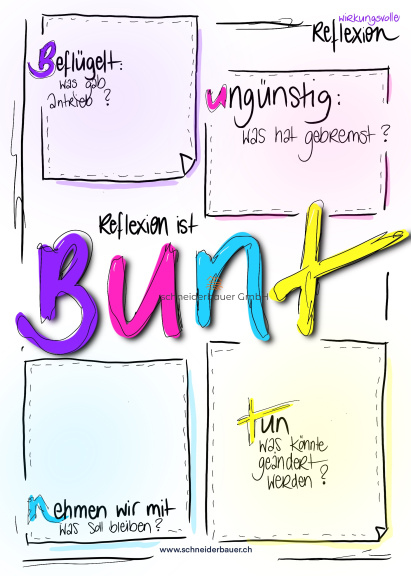 wirkungsvolle
Reflexion
Beflügelt:
was gab
antrieb ?
ungünstig:
was hat gebremst ?
Reflexion ist
Bunt
schneiderbauer GmbH
tun
was könnte
geändert
werden ?
nehmen wir mit
was soll bleiben ?
www.schneiderbauer.ch